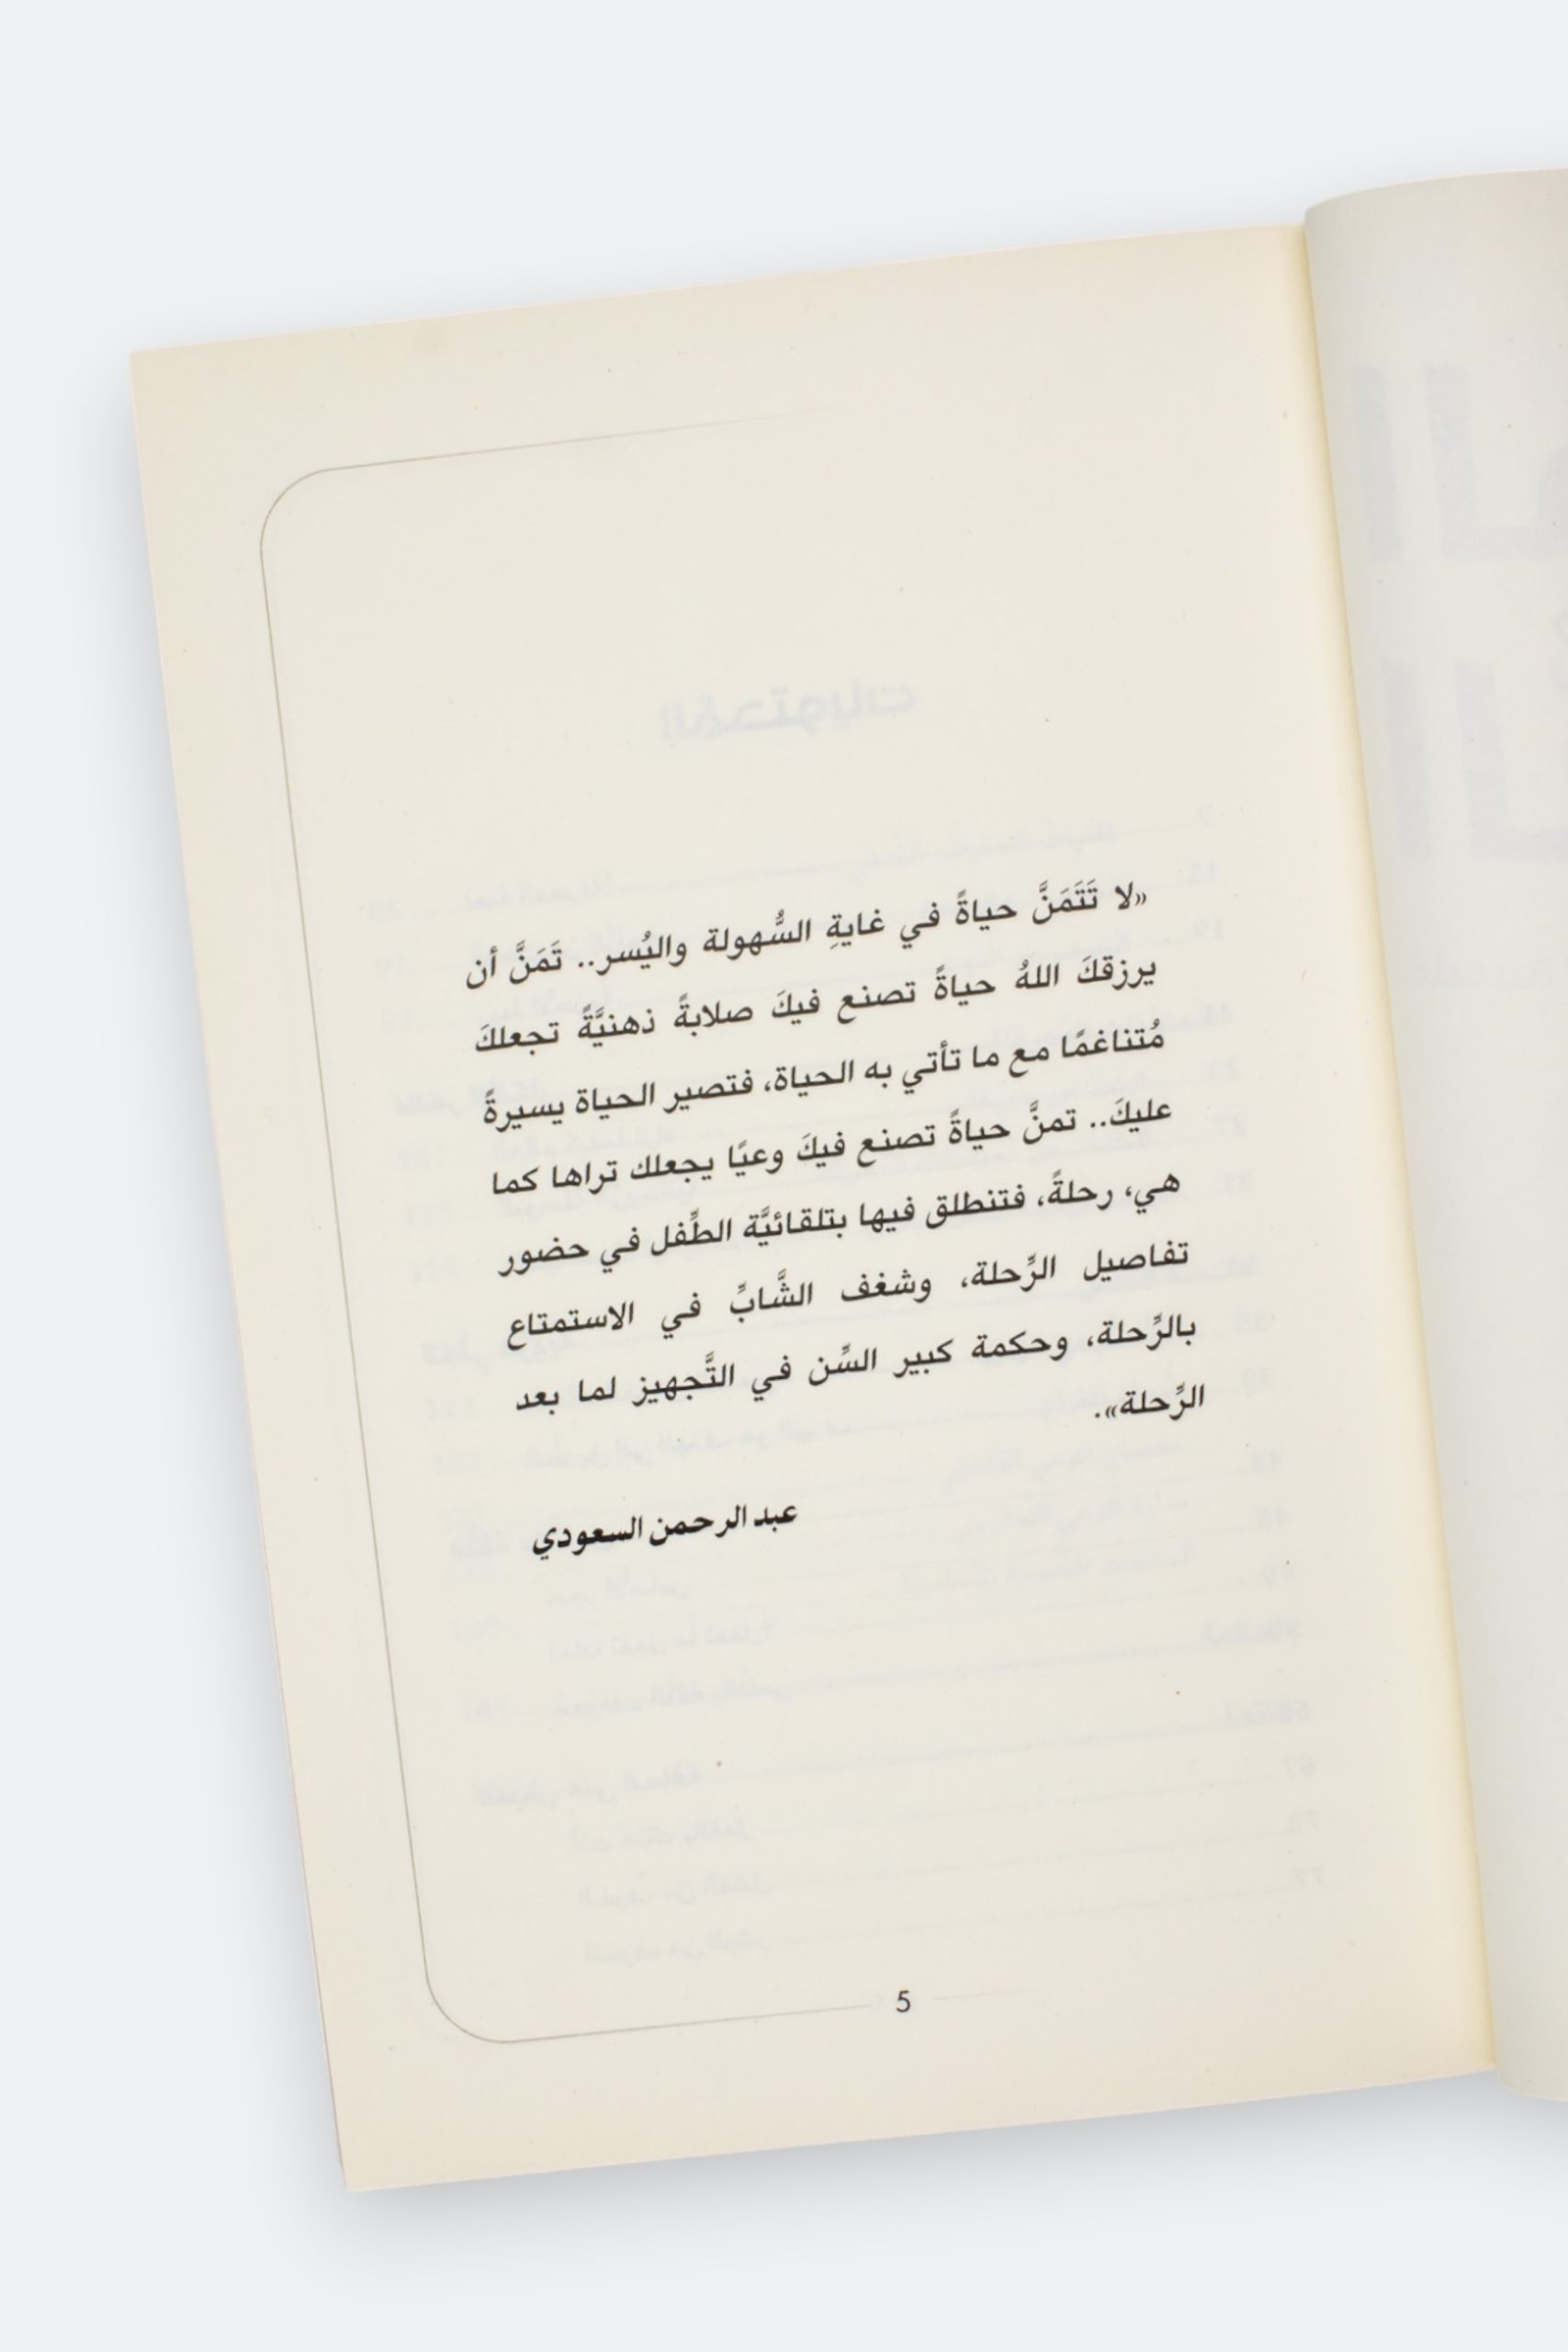 «لا تَتَمَنَّ حياةً في غايةِ السُّهولة واليُسر.. تَمَنَّ أن
يرزقكَ اللهُ حياةً تصنع فيكَ صلابةً ذهنيَّةً تجعلكَ
مُتناغمًا مع ما تأتي به الحياة، فتصير الحياة يسيرةً
عليكَ.. تمنَّ حياةً تصنع فيكَ وعيًا يجعلك تراها كما
هي، رحلةً، فتنطلق فيها بتلقائيَّة الطِّفل في حضور
تفاصيل الرِّحلة، وشغف الشَّابِّ في الاستمتاع
بالرِّحلة، وحكمة كبير السِّن في التَّجهيز لما بعد
الرِّحلة».
عبد الرحمن السعودي
5